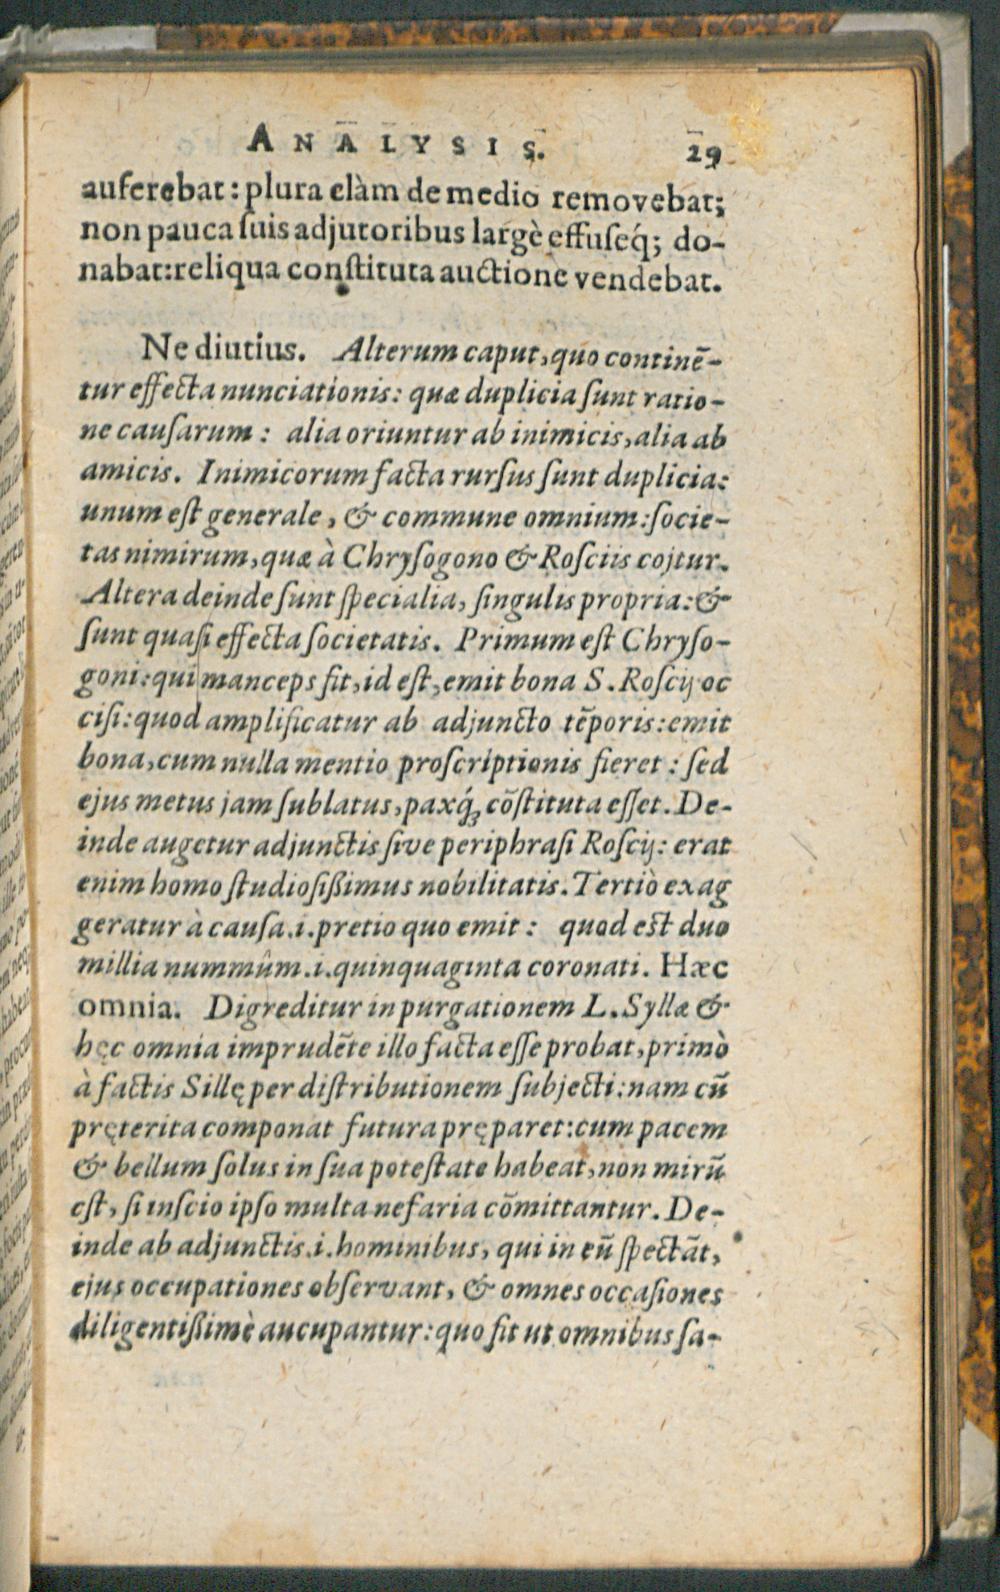 ANALYSIS. 29
auferebat: plura clàm de medio removebat;
non pauca suis adjutoribus largè effuseq́; do-
nabat: reliqua constituta auctione vendebat.
Ne diutius. Alterum caput, quo continē-
tur effecta nunciationis: quæ duplicia sunt ratio-
ne causarum: alia oriuntur ab inimicis, alia ab
amicis. Inimicorum facta rursus sunt duplicia:
unum est generale, & commune omnium: socie-
tas nimirum, quæ à Chrysogono & Rosciis cojtur.
Altera deinde sunt specialia, singulis propria: &
sunt quasi effecta societatis. Primum est Chryso-
goni: qui manceps fit, id est, emit bona S. Roscij oc
cisi: quod amplificatur ab adjuncto tēporis: emit
bona, cum nulla mentio proscriptionis fieret: sed
ejus metus jam sublatus, paxq́; cōstituta esset. De-
inde augetur adjunctis sive periphrasi Roscij: erat
enim homo studiosißimus nobilitatis. Tertiò exag
geratur à causa .i. pretio quo emit: quod est duo
millia nummûm .i. quinquaginta coronati. Hæc
omnia. Digreditur in purgationem L. Syllæ &
hęc omnia imprudēte illo facta esse probat, primò
à factis Sillę per distributionem subjecti: nam cū
pręterita componat futura pręparet: cum pacem
& bellum solus in sua potestate habeat, non mirū
est, si inscio ipso multa nefaria cōmittantur. De-
inde ab adjunctis .i. hominibus, qui in eū spectāt,
ejus occupationes observant, & omnes occasiones
diligentißimè aucupantur: quo fit ut omnibus sa-